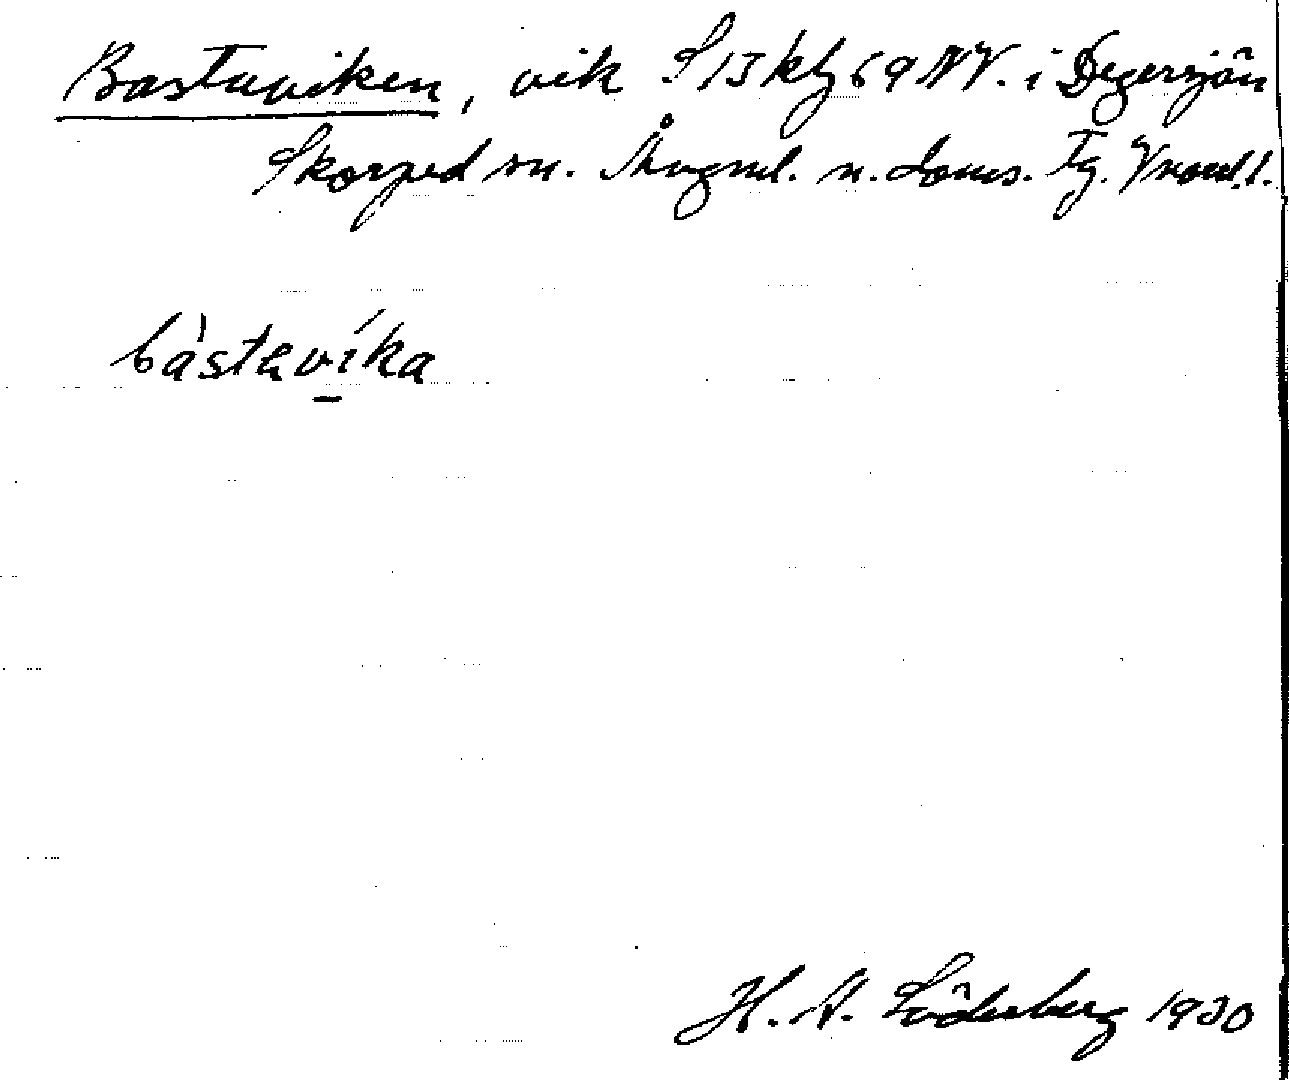 Bastuviken, vik S 13 kbf 69 NV. i Degersjön
Skorped sn. Ångml. n. doms. Tg. Vnorrl. l.
bàstuvíka
H. A. Söderberg 1930